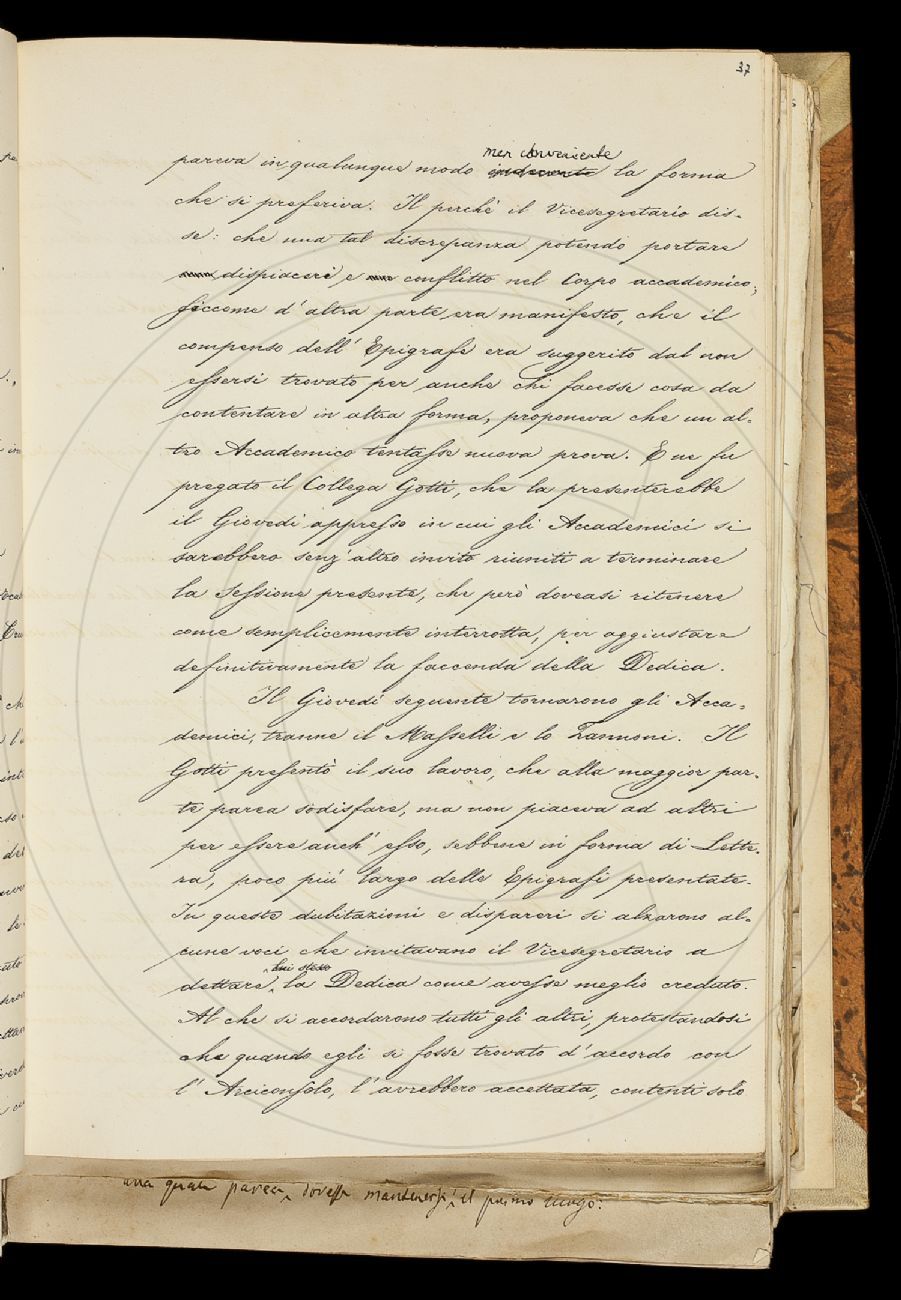 37
men conveniente
pareva in qualunque modo indecente la forma
che si preferiva. Il perchè il Vicesegretario dis-
se: che una tal discrepanza potendo portare
dispiaceri e conflitto nel Corpo accademico;
siccome d' altra parte era manifesto, che il
compenso dell' Epigrafe era suggerito dal non
essersi trovato per anche chi facesse cosa da
contentare in altra forma, proponeva che un al-
tro Accademico tentasse nuova prova. E ne fu
pregato il Collega Gotti, che la presenterebbe
il Giovedì appresso in cui gli Accademici si
sarebbero senz' altro invito riuniti a terminare
la Sessione presente, che però doveasi ritenere
come semplicemente interrotta, per aggiustare
definitivamente la faccenda della Dedica.
Il Giovedí seguente tornarono gli Acca-
demici, tranne il Masselli e lo Zannoni. Il
Gotti presentò il suo lavoro, che alla maggior par-
te parea sodisfare, ma non piaceva ad altri
per essere anch' esso, sebbene in forma di Lette-
ra, poco piú largo delle Epigrafi presentate.
In queste dubitazioni e dispareri si alzarono al-
cune voci che invitavano il Vicesegretario a
lui stesso
dettare la Dedica come avesse meglio creduto.
Al che si accordarono tutti gli altri, protestandosi
che quando egli si fosse trovato d' accordo con
l' Arciconsolo, l' avrebbero accettata, contenti solo
una parea dovesse mantenersi il primo luogo.